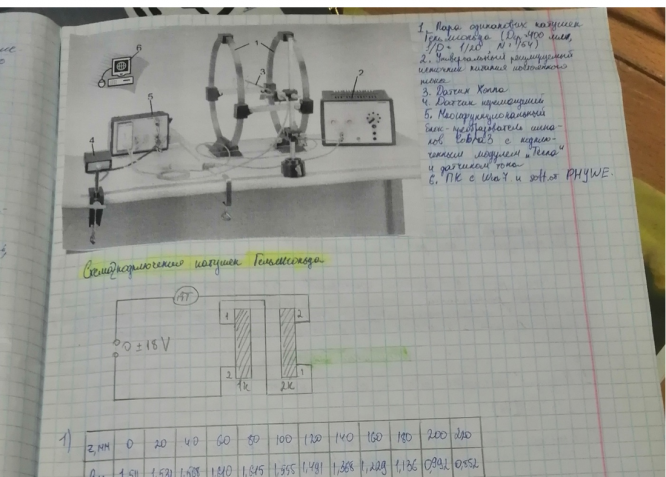 1. Пара одинаковых катушек
Гельмгольца (Dср = 400 мм,
N = 154)
2. Универсальный регулируемый
источник питания постоянного
тока
3. Датчик Холла
4. Датчик перемещений
5. Многофункциональный
блок-преобразователь
Cobra3 с
модулем „Тесла“
и датчиком тока
6. ПК с Win7 и soft от PHYWE.
6
1
5
3
2
4
Гельмгольца
AT
1
2
0 ± 18 V
2
1
1к
2к
1)
z, мм 0 20 40 60 80 100 120 140 160 180 200 220
1,531 1,568 1,610 1,615 1,481 1,368 1,229 1,136 0,992 0,852